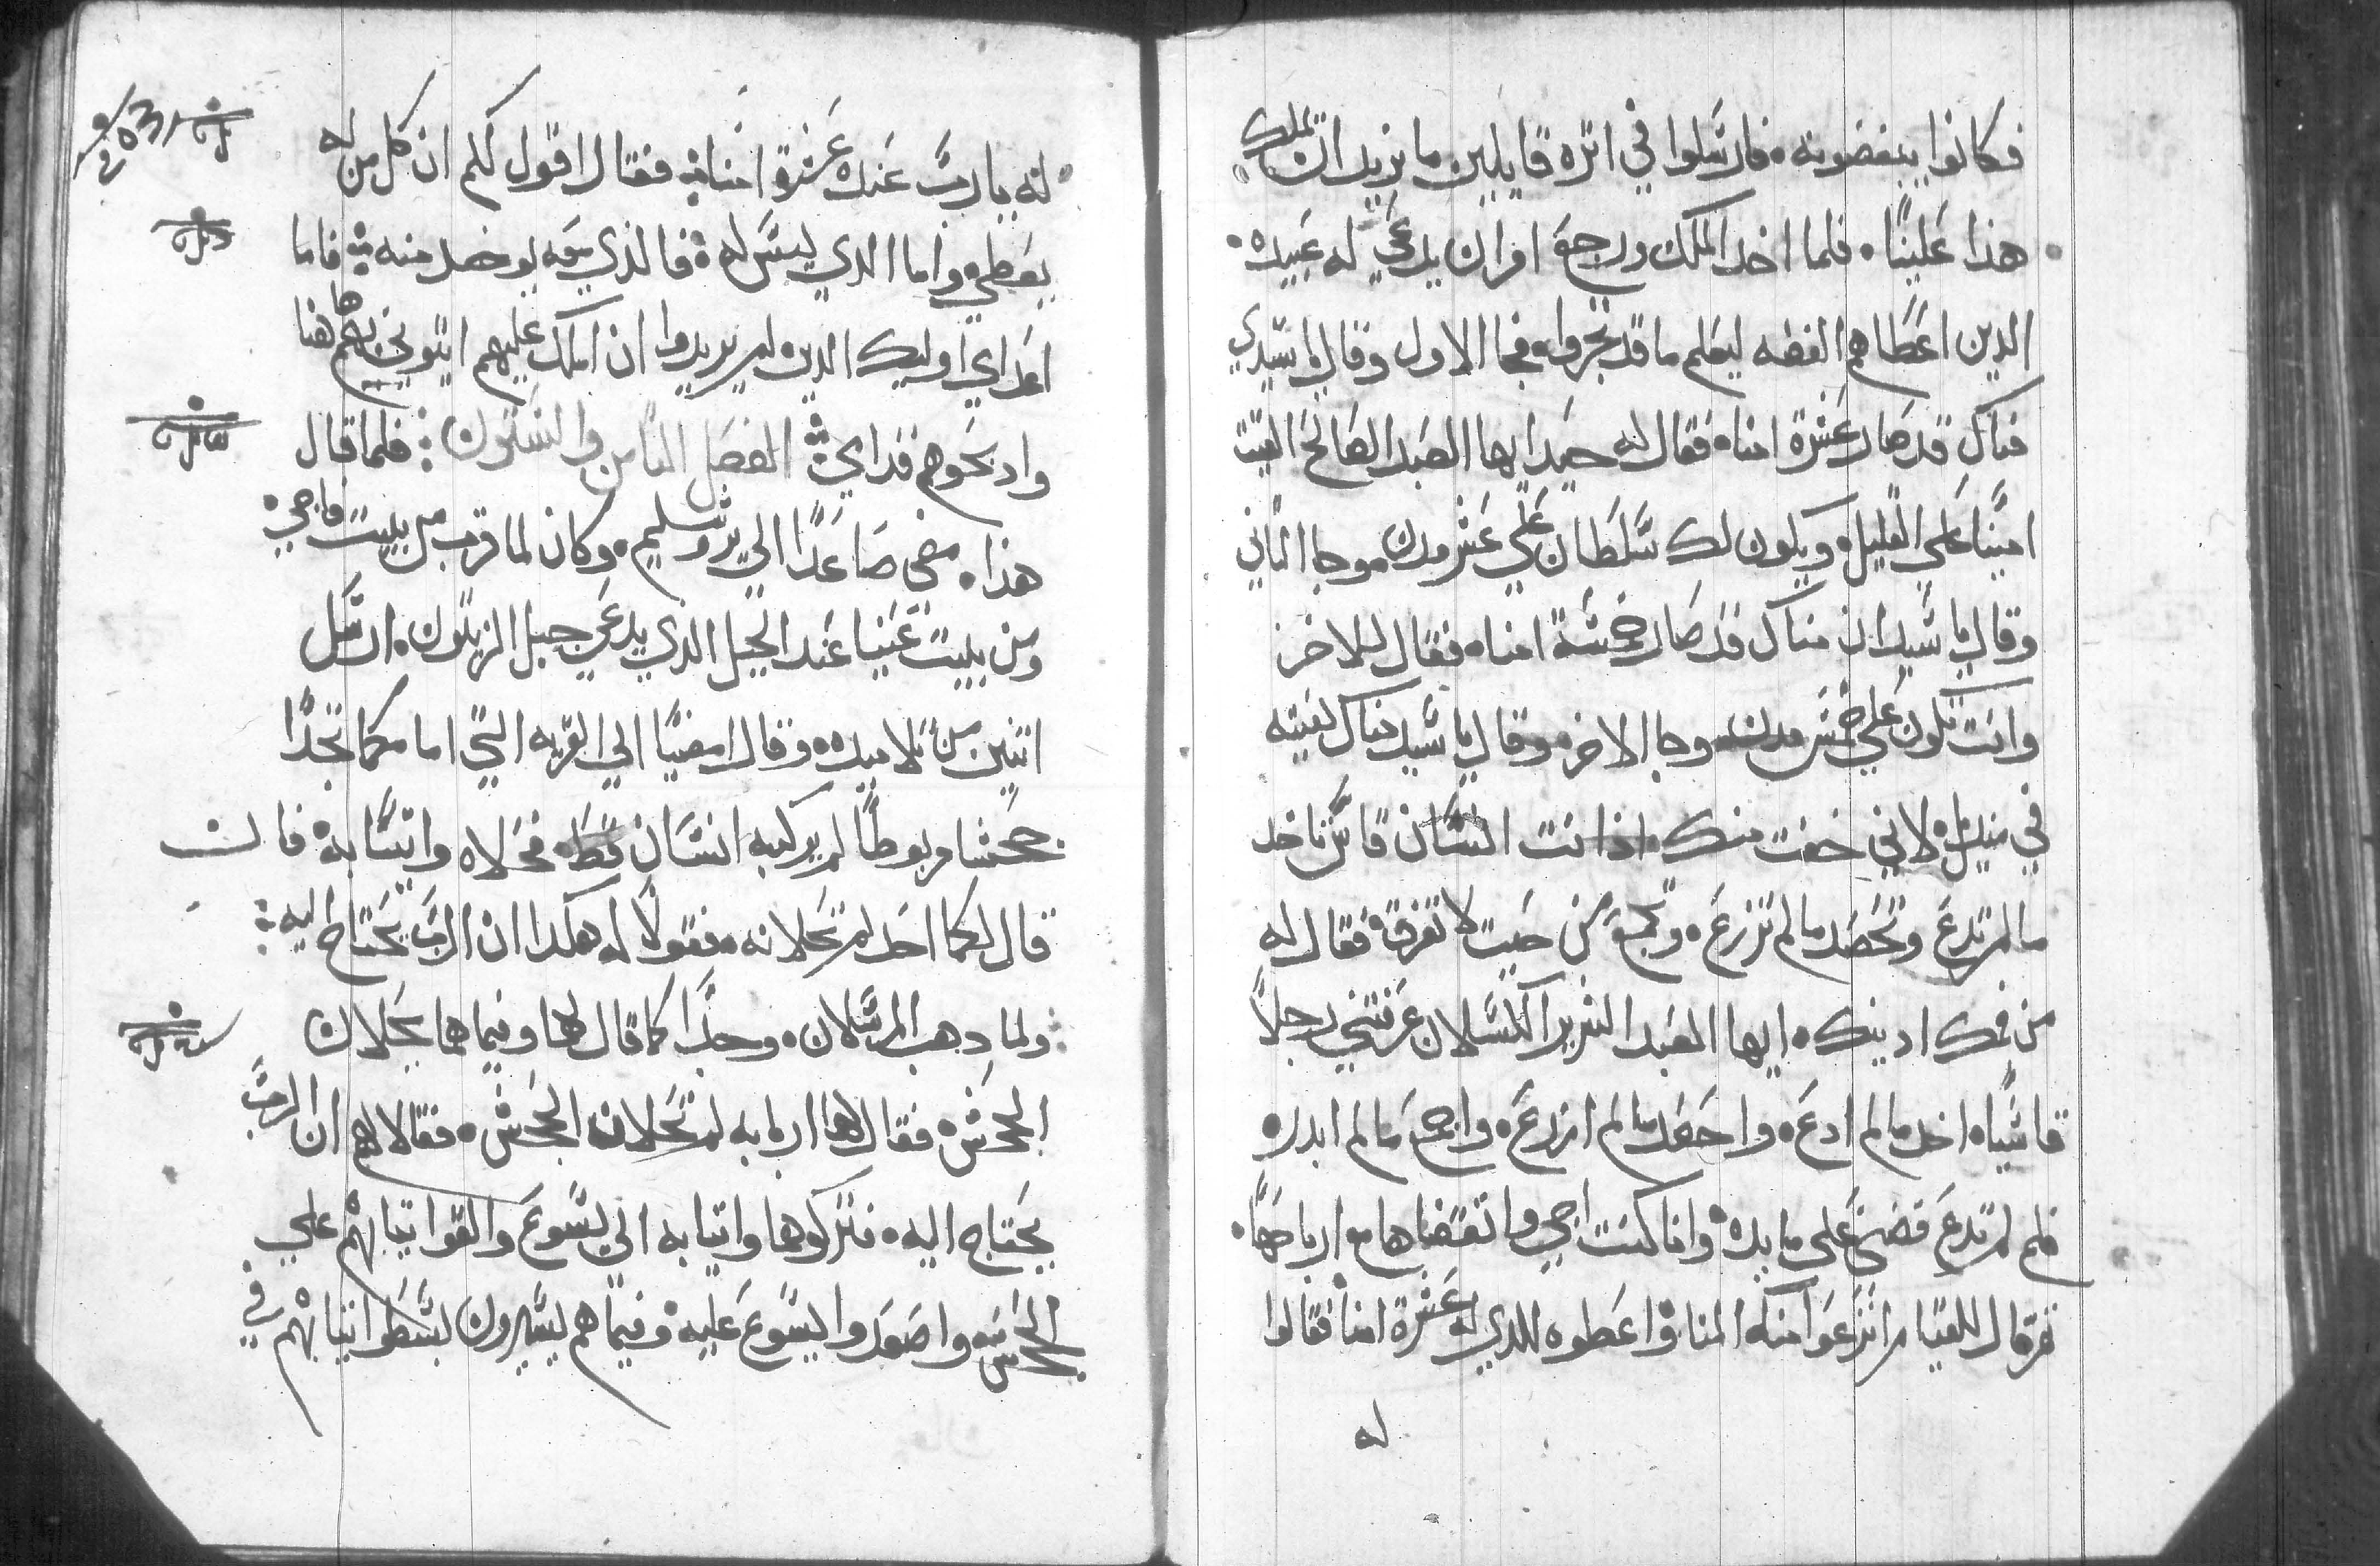 فكانوا يبغضونه فارسلوا في اتره قايلين ما نريد ان يملك
هذا علينا فلما اخد الملك ورجع امر ان يدعي له عبيده
الدين اعطاهم الفضه ليعلم ما قد تجروا فجا الاول وقال يا سيدي
مناك قد صار عشرة امناه فقال له جيد ايها العبد الصالح الفيت
امينا علي القليل ويكون لك سلطان علي عشر مدن وجا التاني
وقال يا سيد ان مناك قد صار خمسة امناه فقال للاخر
وانت تكون علي خمس مدن وجا الاخر وقال يا سيد مناك لفيته
في منديل لاني خفت منك اذ انت انسان قاس تاخد
ما لم تدع وتحصد ما لم تزرع وتجمع من حيت لا تفرق فقال له
من فمك ادينك ايها العبد الشرير الكسلان عرفتني رجلا
قاسياه اخد ما لم ادع واحصد ما لم ازرع واجمع ما لم ابدره
فلم لم تدع فضتي علي مايده وانا كنت اجي واتقضاها مع ارباحها
تم قال للقيام انزعوا منه المنا واعطوه للدي له عشرة امنا فقالوا
له
له يا رب عنده عشرة امناه فقال اقول لكم ان كل من له
يعطي واما الدي ليس له فالذي معه يوخد منه فاما
اعداي اوليك الدين لم يريدوا ان املك عليهم ايتوني بهم هاهنا
وادبحوهم قداي الفصل التامن والستون فلما قال
هذا مضي صاعدا الي يروشليم وكان لما قرب من بيت فاجي
ومن بيت عنيا عند الجبل الذي يدعي جبل الزيتون ارسل
اتنين من تلاميده وقال امضيا الي القريه التي امامكما تجدا
جحشا مربوطا لم يركبه انسان قط فحلاه واتيا به فان
قال لكما احد لم تحلانه فقولا له هكدا ان الرب يحتاج اليه
ولما دهب المرسلان وجدا كما قال لهما وفيما هما يحلان
الجحش فقال لهما اربابه لم تحلان الجحش فقالا لهم ان الرب
يحتاج اليه فتركوهما واتيا به الي يسوع والقوا تيابهم علي
الجحش واصعدوا يسوع عليه وفيما هم يسيرون بسطوا تيابهم في